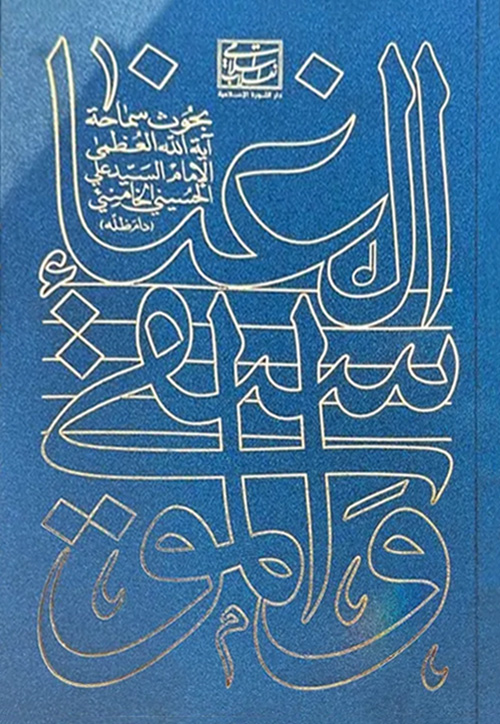 دار الثورة الإسلامية
بحوث سماحة
آية الله العظمى
الإمام السيد علي
الحسيني الخامنئي
(دام ظله)
الغناء
والموسيقى